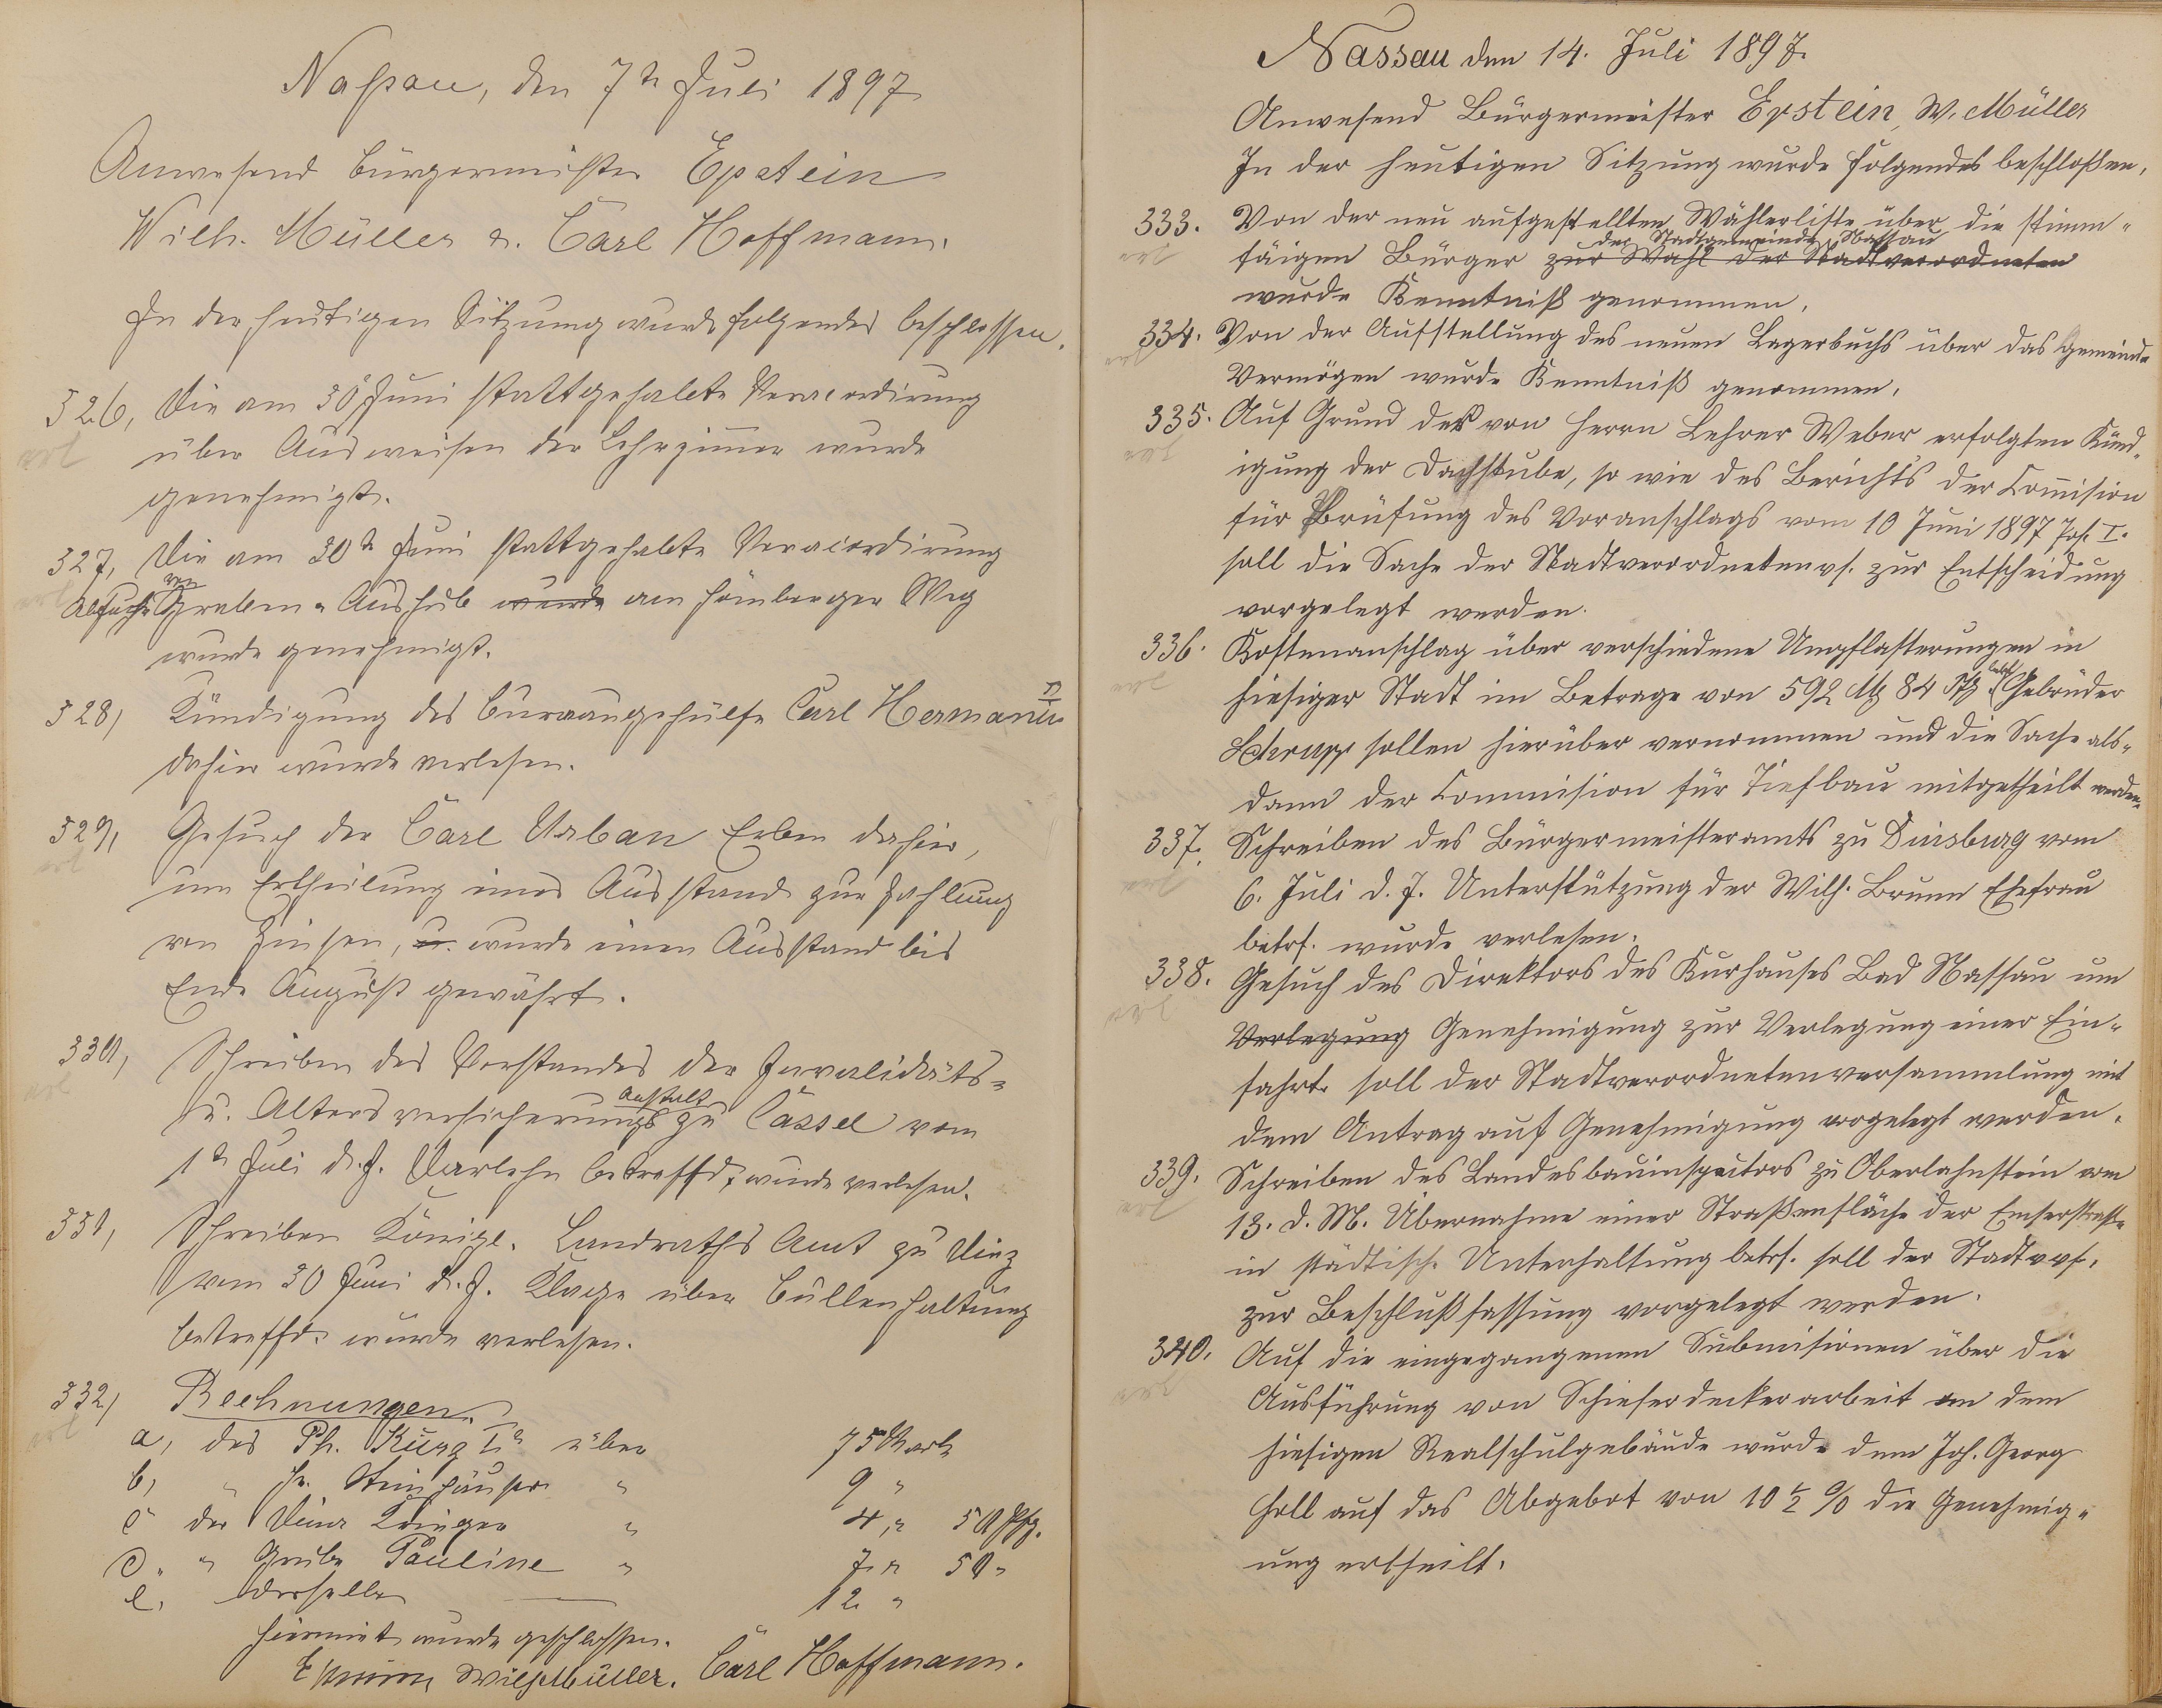 Naßau, den 7tn Juli 1897
Anwesend Bürgermeister Epstein
Wilh. Müller u. Carl Hoffmann.
In der heutigen Sitzung wurde folgendes beschlossen.
326, Die am 30 Juni stattgehabte Veraccordirung
über Ausweisen der Lehrzimmer wurde
genehmigt.
327, Die am 30tn Juni stattgehabte Veracordirung
Abfuhr von Graben-Aushub wurde am Hömberger Weg
wurde genehmigt.
328, Kündigung des Bureaugehülfe Carl Hermann
dahier wurde verlesen.
329, Gesuch der Carl Urban Erben dahier,
um Ertheilung eines Ausstand zur Zahlung
von Zinsen, u. wurde einen Ausstand bis
Ende August gewährt.
330, Schreiben des Vorstandes der Invaliditäts-
u. Altersversicherungs Anstalt zu Cassel vom
1tn Juli d. J. Darlehn betreffd, wurde verlesen.
331, Schreiben Königl. Landraths Amt zu Diez
vom 30 Juni d. J. Klage über Bullenhaltung
betreffd. wurde verlesen.
332, Rechnungen.
a, des Ph. Kurz Ir über 75 Mark
b, " Fr. Steinhäuser " 9 "
c der Düna Krieger " 4 " 50 Pfg.
d. " Grube Pauline " 7 " 50 "
e. derselbe — 12 "
Hiermit wurde geschlossen.
Epstein Wilh Müller. Carl Hoffmann.
Nassau den 14. Juli 1897.
Anwesend Bürgermeister Epstein, W. Müller
In der heutigen Sitzung wurde folgendes beschloßen.
333. Von der neu aufgestellten Wählerliste über die stimm-
der Stadtgemeinde Nassau
fäigen Bürger zur Wahl der Stadtverordneten
wurde Kenntniß genommen.
334. Von der Aufstellung des neuen Lagerbuchs über das Gemeinde
Vermögen wurde Kenntniß genommen.
335. Auf Grund der von Herrn Lehrer Weber erfolgten Künd-
igung der Dachstube, so wie des Berichts der Commision
für Prüfung des Voranschlags vom 10 Juni 1897 Pos. I.
soll die Sache der Stadtverordnetenvs. zur Entscheidung
vorgelegt werden.
336. Kostenanschlag über verschiedene Umpflasterungen in
hiesiger Stadt im Betrage von 592 M 84 Pfg betrf. Gebrüder
Schrupp sollen hierüber vernommen und die Sache als-
dann der Commision für Tiefbau mitgetheilt werden.
337. Schreiben des Bürgermeisteramts zu Duisburg vom
6. Juli d. J. Unterstützung der Wilh. Brunn Ehefrau
betrf. wurde verlesen.
338. Gesuch des Direktors des Kurhauses Bad Nassau um
Verlegung Genehmigung zur Verlegung einer Ein-
fahrt soll der Stadtverordnetenversammlung mit
dem Antrag auf Genehmigung vorgelegt werden.
339. Schreiben des Landesbauinspectors zu Oberlahnstein vom
13. d. M. Übernahme einer Straßenfläche der Emserstraße
in städtische Unterhaltung betrf. soll der Stadtvvs.
zur Beschlußfassung vorgelegt werden.
340. Auf die eingegangenen Submisionen über die
Ausführung von Schieferdeckerarbeit an dem
hiesigen Realschulgebäude wurde dem Joh. Georg
Holl auf das Abgebot von 10 1/2 % die Genehmig-
ung ertheilt.